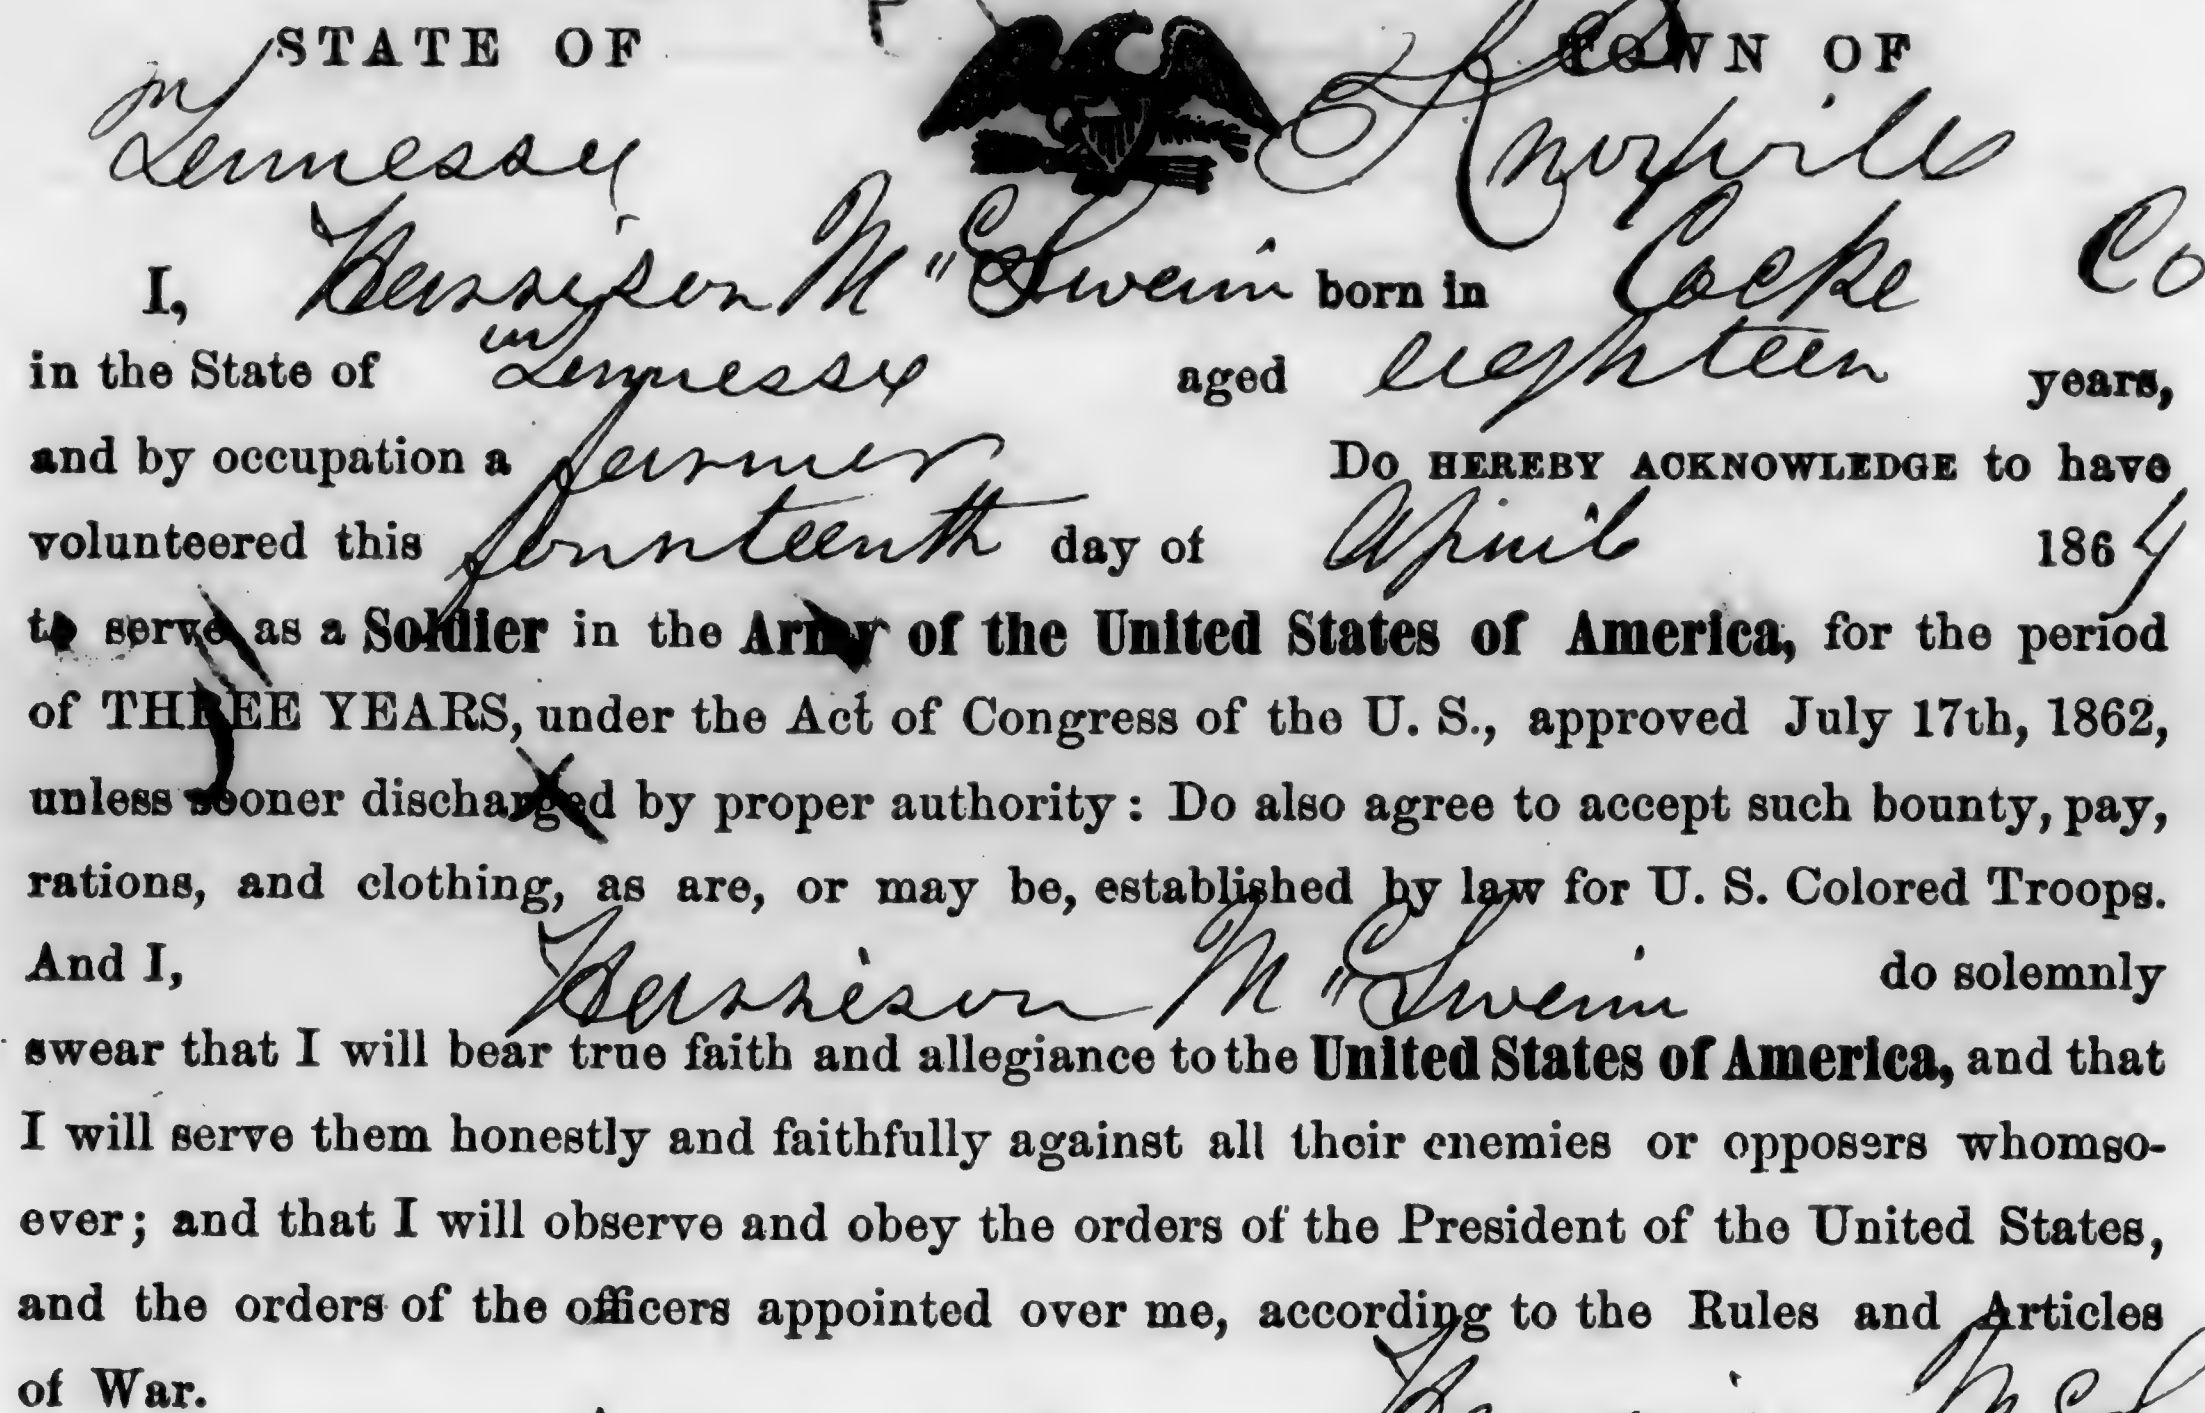 STATE OF TOWN OF
Tennessee Knoxville
I, Harrison M "Swain born in Cocke Co
in the State of Tennessee aged eighteen years,
and by occupation a farmer Do HEREBY ACKNOWLEDGE to have
volunteered this fourteenth day of April 1864
to serve as a Soldier in the Army of the United States of America, for the period
of THREE YEARS, under the Act of Congress of the U. S., approved July 17th, 1862,
unless sooner discharged by proper authority: Do also agree to accept such bounty, pay,
rations, and clothing, as are, or may be, established by law for U. S. Colored Troops.
And I, Harrison M "Swain do solemnly
swear that I will bear true faith and allegiance to the United States of America, and that
I will serve them honestly and faithfully against all their enemies or opposers whomso-
ever; and that I will observe and obey the orders of the President of the United States,
and the orders of the officers appointed over me, according to the Rules and Articles
of War.